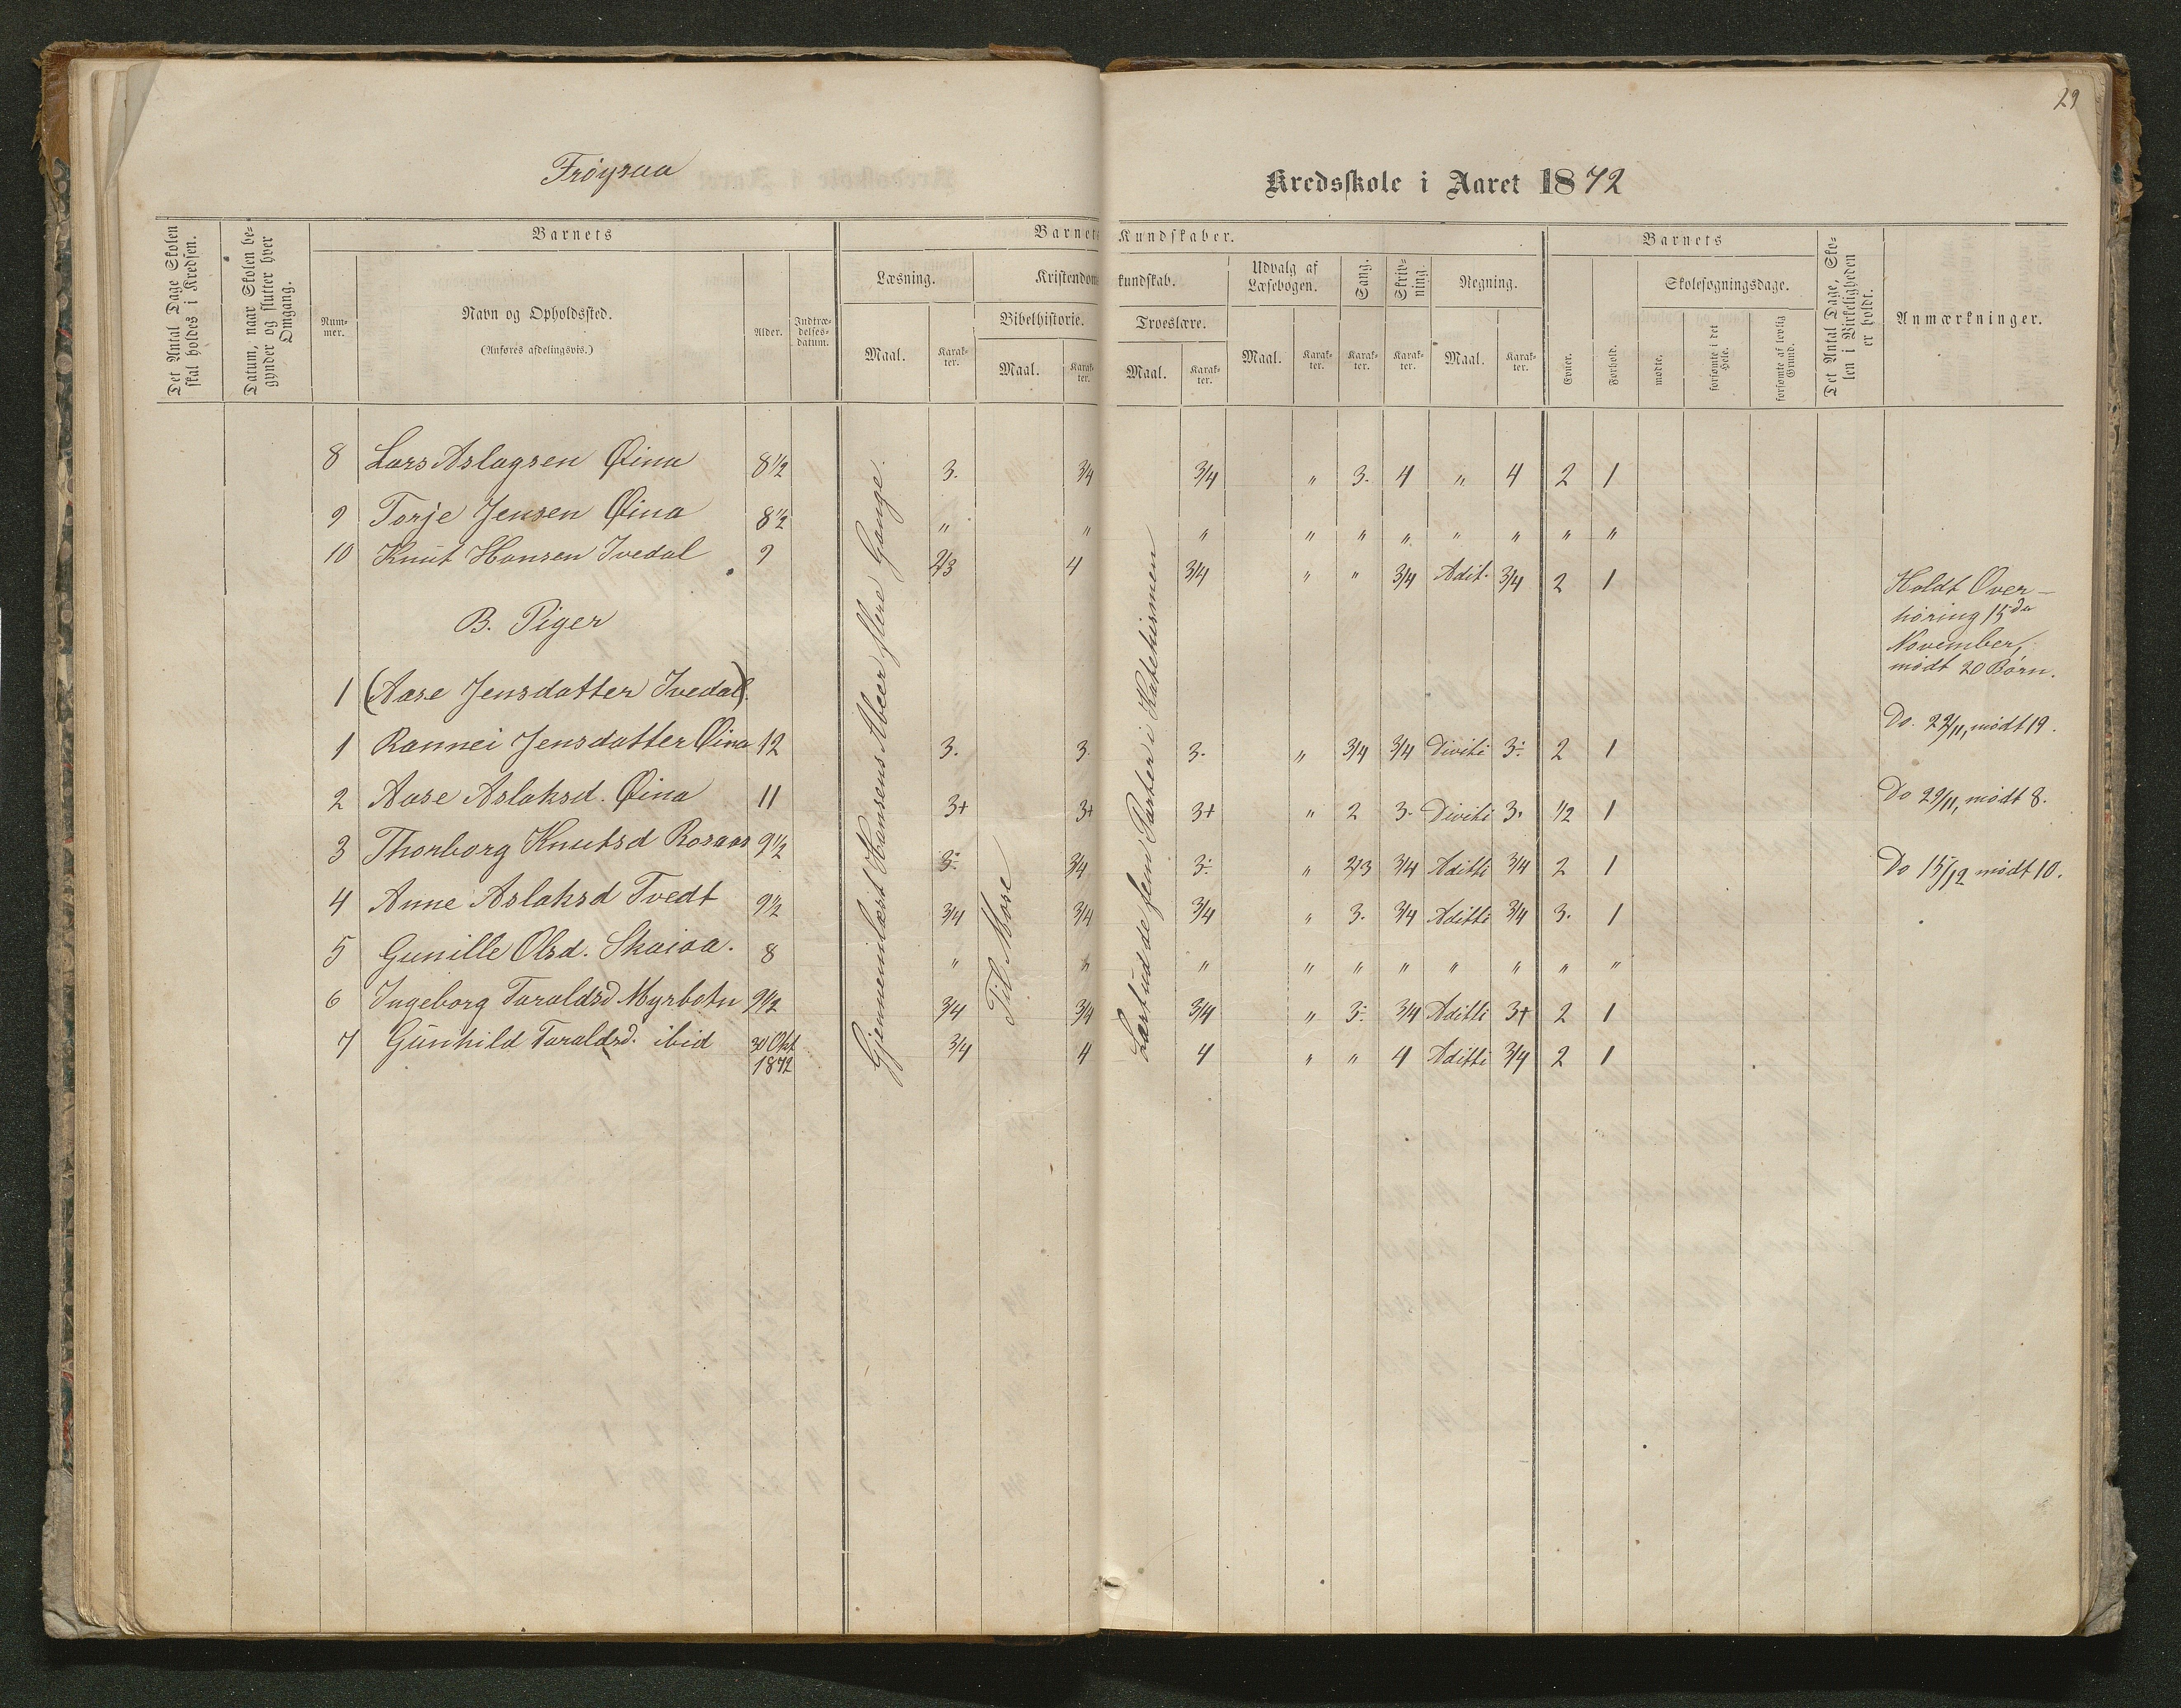 29
Frøysaa
Kredsskole i Aaret 1872
Det Antal Dage Skolen skal holdes i Kredsen.
Datum, naar Skolen begynder og slutter hver Omgang.
Barnets
Barnets Kundskaber.
Barnets
Det Antal Dage, Skolen i Virkeligheden er holdt.
Anmærkninger.
Nummer.
Navn og Opholdssted.
(Anføres afdelingsvis.)
Alder.
Indtrædelsesdatum.
Læsning.
Kristendomskundskab.
Udvalg af Læsebogen.
Sang.
Skrivning.
Regning.
Evner.
Forhold.
Skolesøgningsdage.
Bibelhistorie.
Troeslære.
Maal. Karakter. Maal. Karakter. Maal. Karakter. Maal. Karakter. Karakter. Karakter. Maal. Karakter.
mødte.
forsømte i det Hele.
forsømte af lovlig Grund.
8 Lars Aslagsen Øina 8½ 3. 3/4 3/4 " 3. 4 " 4 2 1
9 Torje Jensen Øina 8½ " " " " " " " " " "
10 Knut Hansen Ivedal 9 2/3 4 3/4 " " 3/4 Adit. 3/4 2 1
B. Piger
1 (Aase Jensdatter Ivedal).
1 Rannei Jensdatter Øina 12 3. 3. 3. " 3/4 3/4 Diviti 3÷ 2 1
2 Aase Aslaksd. Øina 11 3+ 3+ 3+ " 2 3. Diviti 3. 1/2 1
3 Thorborg Knutsd Rosaas 9½ 3÷ 3/4 3÷ " 2/3 3/4 Aditti 3/4 2 1
4 Anne Aslaksd Tvedt 9½ 3/4 3/4 3/4 " 3. 3/4 Aditti 3/4 3. 1
5 Gunille Olsd. Skaiaa. 8 " " " " " " " " " "
6 Ingeborg Taraldsd Myrbotn 9½ 3/4 3/4 3/4 " 3÷ 3/4 Aditti 3+ 2 1
7 Gunhild Taraldsd. ibid 30 Okt 1872 3/4 4 4 " " 4 Aditti 3/4 2 1
Gjennemlæst Hansens Abeer flere Gange.
Til Mose
Lært ud de fem Parter i Katekismen
Holdt Over-
høring 15de
November,
mødt 20 Børn.
Do. 22/11, mødt 19.
Do 29/11, mødt 8.
Do 15/12 mødt 10.